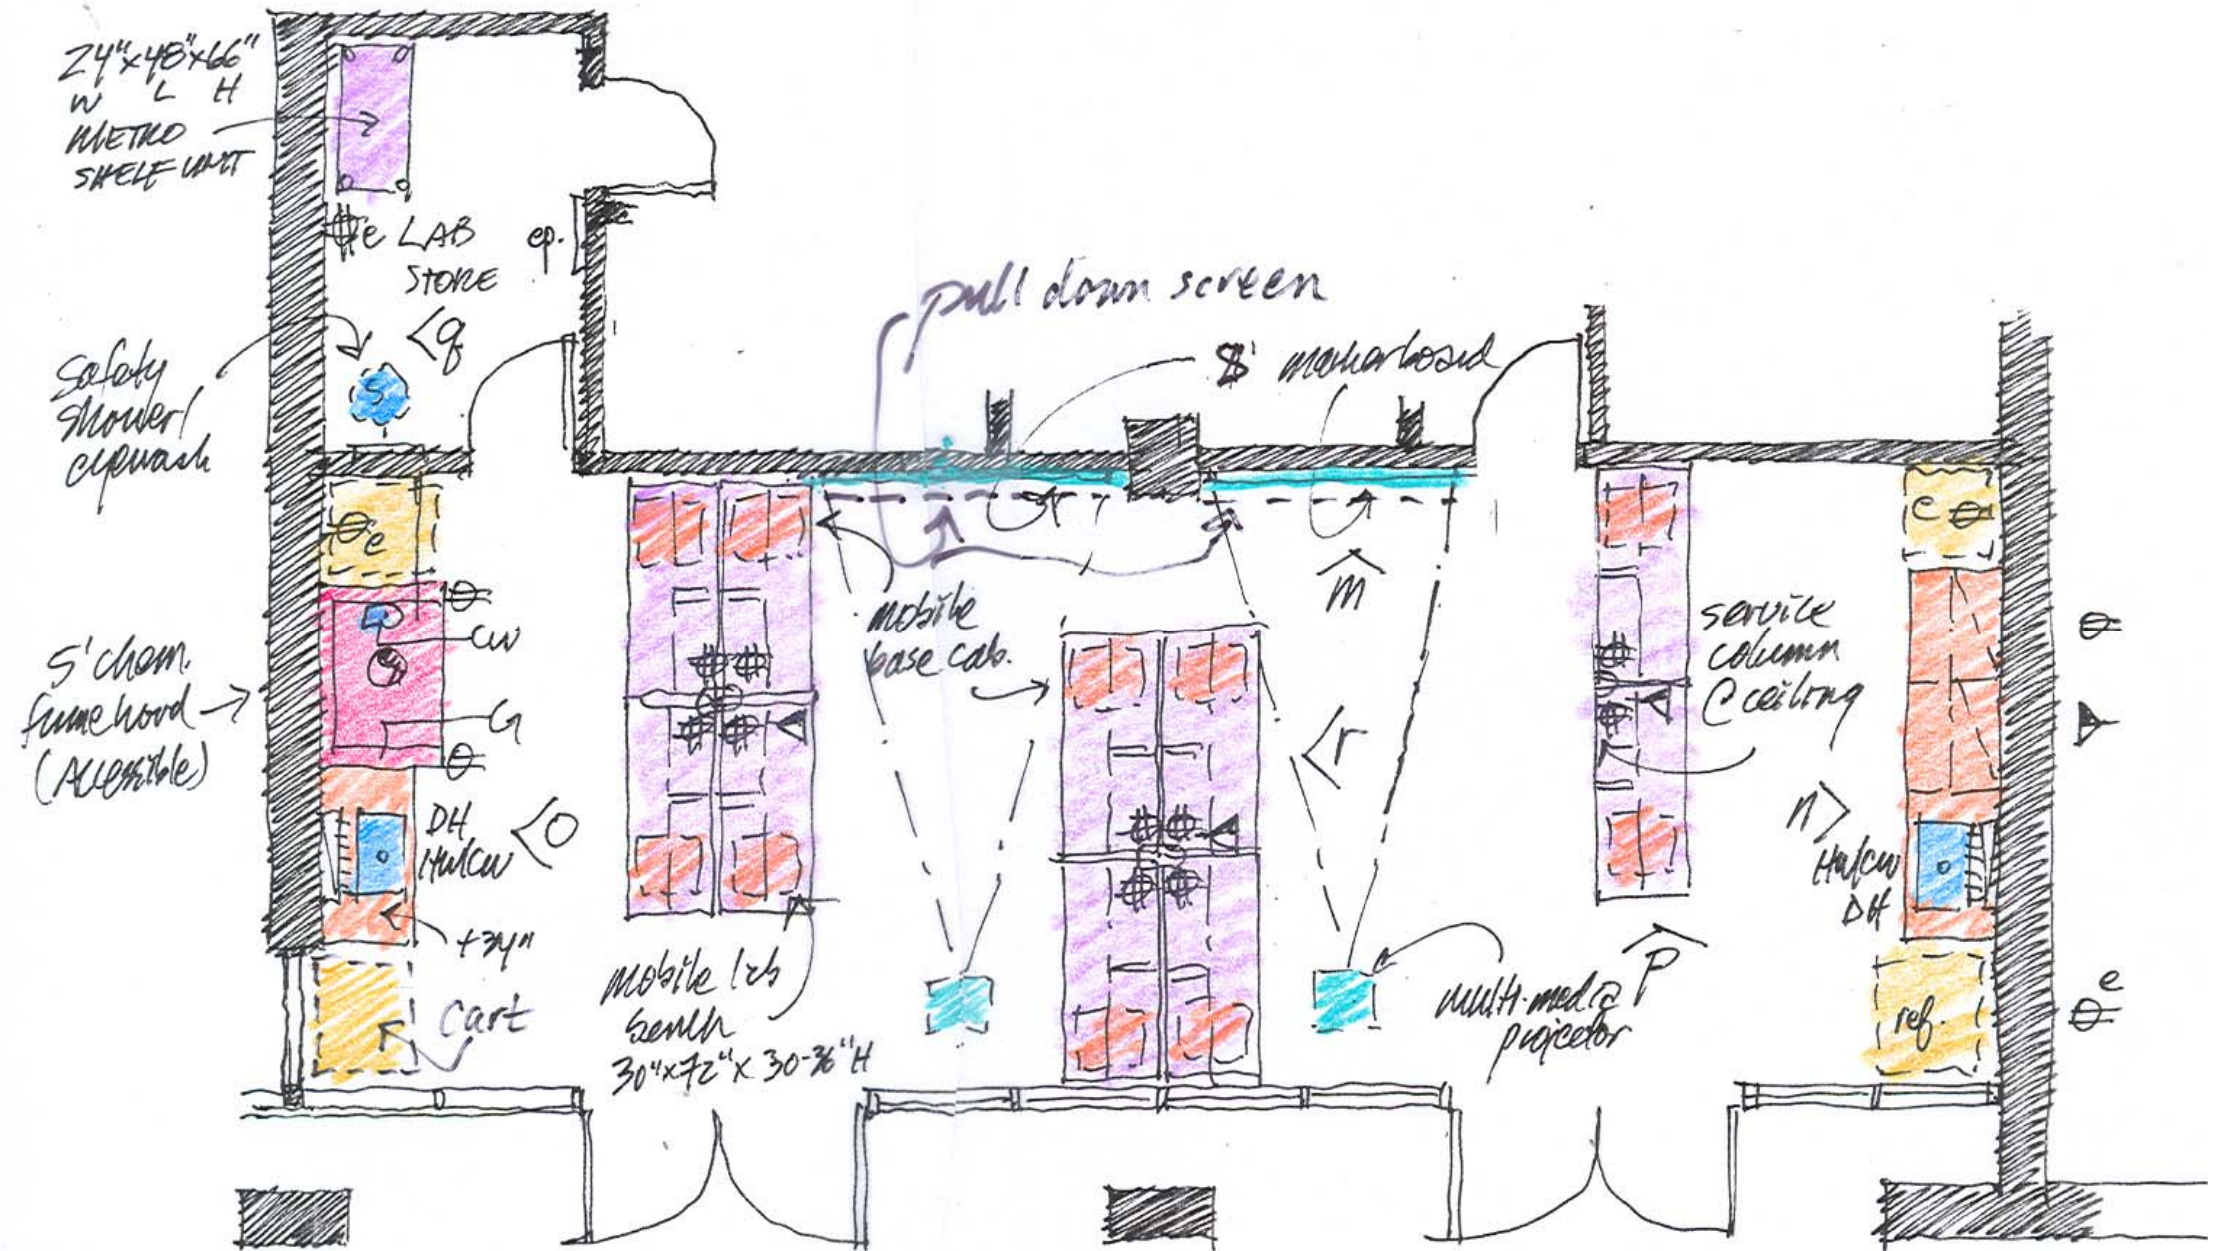 24"x48"x66"
W L H
METRO
SHELF UNIT
e LAB
STORE
ep.
<q
Safety
shower/
eyewash
S
pull down screen
8' markerboard
e
e
5' chem.
fume hood
(Accessible)
CW
G
DH
HW/CW
<O
+34"
cart
mobile
base cab.
mobile lab
bench
30"x72"x 30-36"H
m
<r
service
column
@ ceiling
n>
HW/CW
DH
P
multi-media
projector
ref.
e